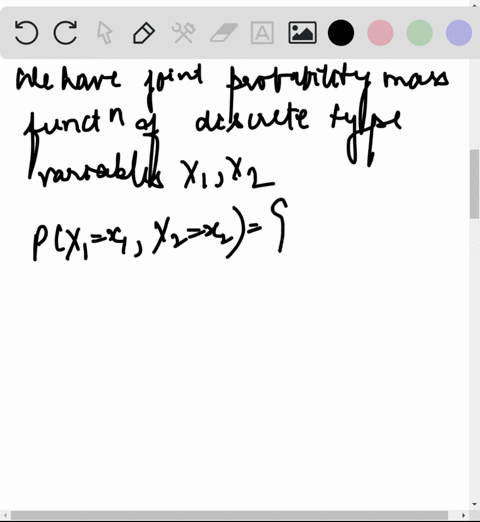 We have joint probability mass
functn of discrete type
variables X1, X2
P(X1=x1, X2=x2)={